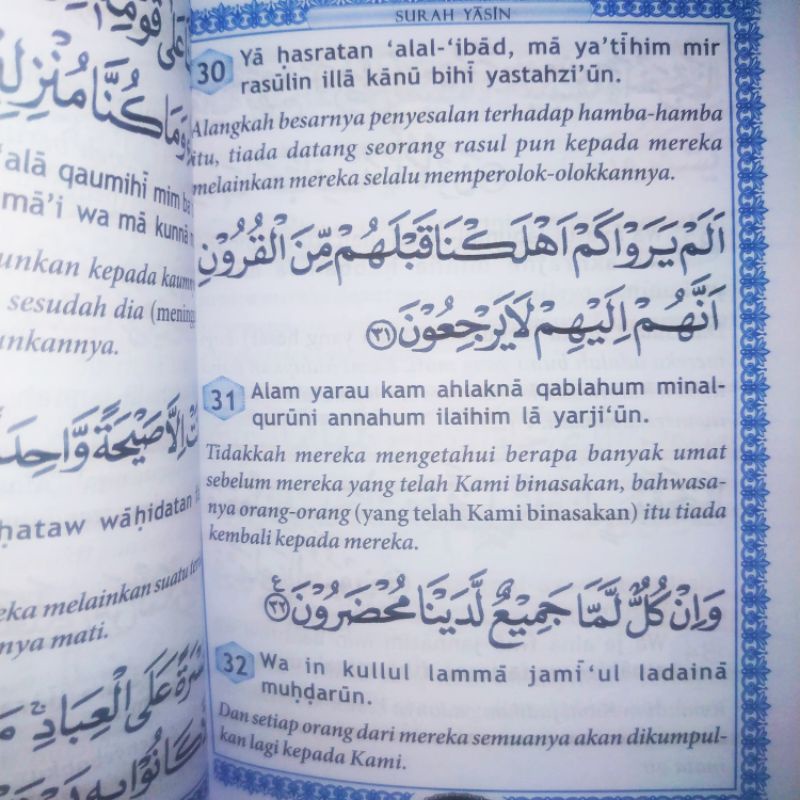 SURAH YĀSĪN
30 Yā ḥasratan ‘alal-‘ibād, mā ya’tīhim mir
rasūlin illā kānū bihī yastahzi’ūn.
Alangkah besarnya penyesalan terhadap hamba-hamba
itu, tiada datang seorang rasul pun kepada mereka
melainkan mereka selalu memperolok-olokkannya.
اَلَمْ يَرَوْا كَمْ اَهْلَكْنَا قَبْلَهُمْ مِّنَ الْقُرُوْنِ
اَنَّهُمْ اِلَيْهِمْ لَا يَرْجِعُوْنَ ٣١
31 Alam yarau kam ahlaknā qablahum minal-
qurūni annahum ilaihim lā yarji‘ūn.
Tidakkah mereka mengetahui berapa banyak umat
sebelum mereka yang telah Kami binasakan, bahwasa-
nya orang-orang (yang telah Kami binasakan) itu tiada
kembali kepada mereka.
وَاِنْ كُلٌّ لَّمَّا جَمِيْعٌ لَّدَيْنَا مُحْضَرُوْنَ ٣٢ ع
32 Wa in kullul lammā jamī‘ul ladainā
muḥḍarūn.
Dan setiap orang dari mereka semuanya akan dikumpul-
kan lagi kepada Kami.
عَلٰى قَوْمِهٖ
وَمَا كُنَّا مُنْزِلِ
‘alā qaumihī mim ba
mā’i wa mā kunnā
unkan kepada kaum
sesudah dia (mening
unkannya.
اِلَّا صَيْحَةً وَّاحِدَ
ḥataw wāḥidatan
eka melainkan suatu
nya mati.
عَلَى الْعِبَادِ
كَانُوْا بِهٖ